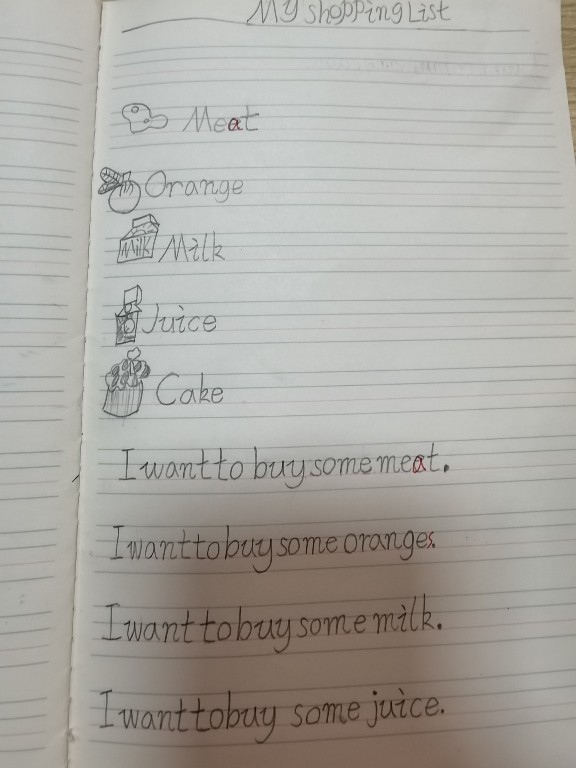 My shopping List
Meat
Orange
Milk
Milk
Juice
Cake
I want to buy some meat.
I want to buy some oranges.
I want to buy some milk.
I want to buy some juice.